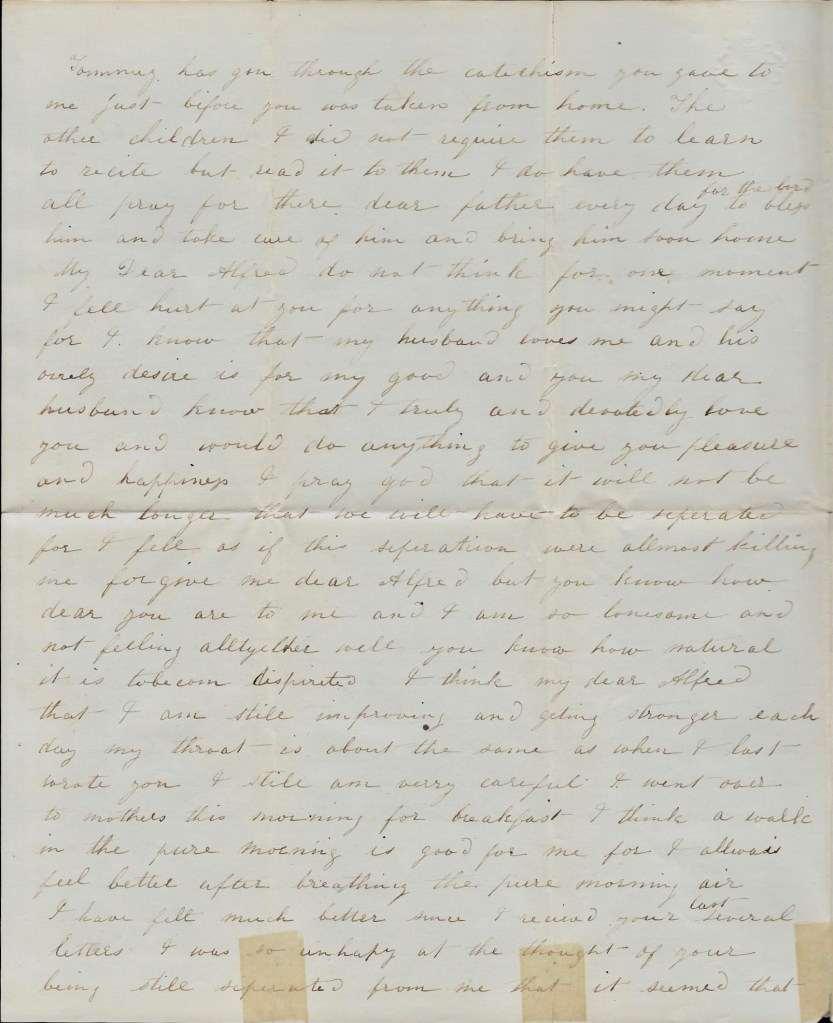 Tommy has gon through the catechism you gave to
me just bifore you was taken from home. The
other children I did not require them to learn
to recite but read it to them I do have them
all pray for there dear father every day for the lord to bless
him and take care of him and bring him soon home
My Dear Alfred do not think for one moment
I fell hurt at you for anything you might say
for I know that my husband loves me and his
only desire is for my good and you my dear
husband know that I truly and devotedly love
you and would do anything to give you pleasure
and happiness I pray god that it will not be
much longer that we will have to be seperated
for I fell as if this seperation were allmost killing
me forgive me dear Alfred but you know how
dear you are to me and I am so lonesome and
not felling alltogether well you know how natural
it is tobecom dispirited I think my dear Alfred
that I am still improving and geting stronger each
day my throat is about the same as when I last
wrote you I still am verry careful I went over
to mothers this morning for breakfast I think a walk
in the pure morning is good for me for I allwais
feel better after breathing the pure morning air
I have felt much better since I recieved your last several
letters I was so unhapy at the thought of your
being still seperated from me that it seemed that